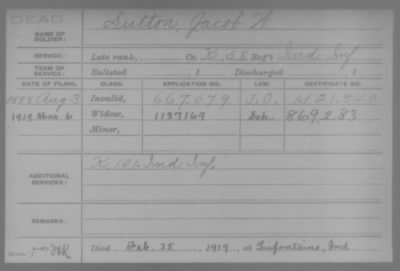 DEAD
NAME OF SOLDIER: Sutton, Jacob W
SERVICE: Late rank, Co. K, 58 Reg't Ind Inf
TERM OF SERVICE: Enlisted , 1 Discharged , 1
DATE OF FILING. CLASS. APPLICATION NO. LAW. CERTIFICATE NO.
1888 Aug 3 Invalid, 667,079
1919 Mar. 6 Widow, 1137169 869,283
Minor,
ADDITIONAL SERVICES: K 101 Ind Inf.
REMARKS:
Died Feb. 25, 1919, at Lafontaine, Ind